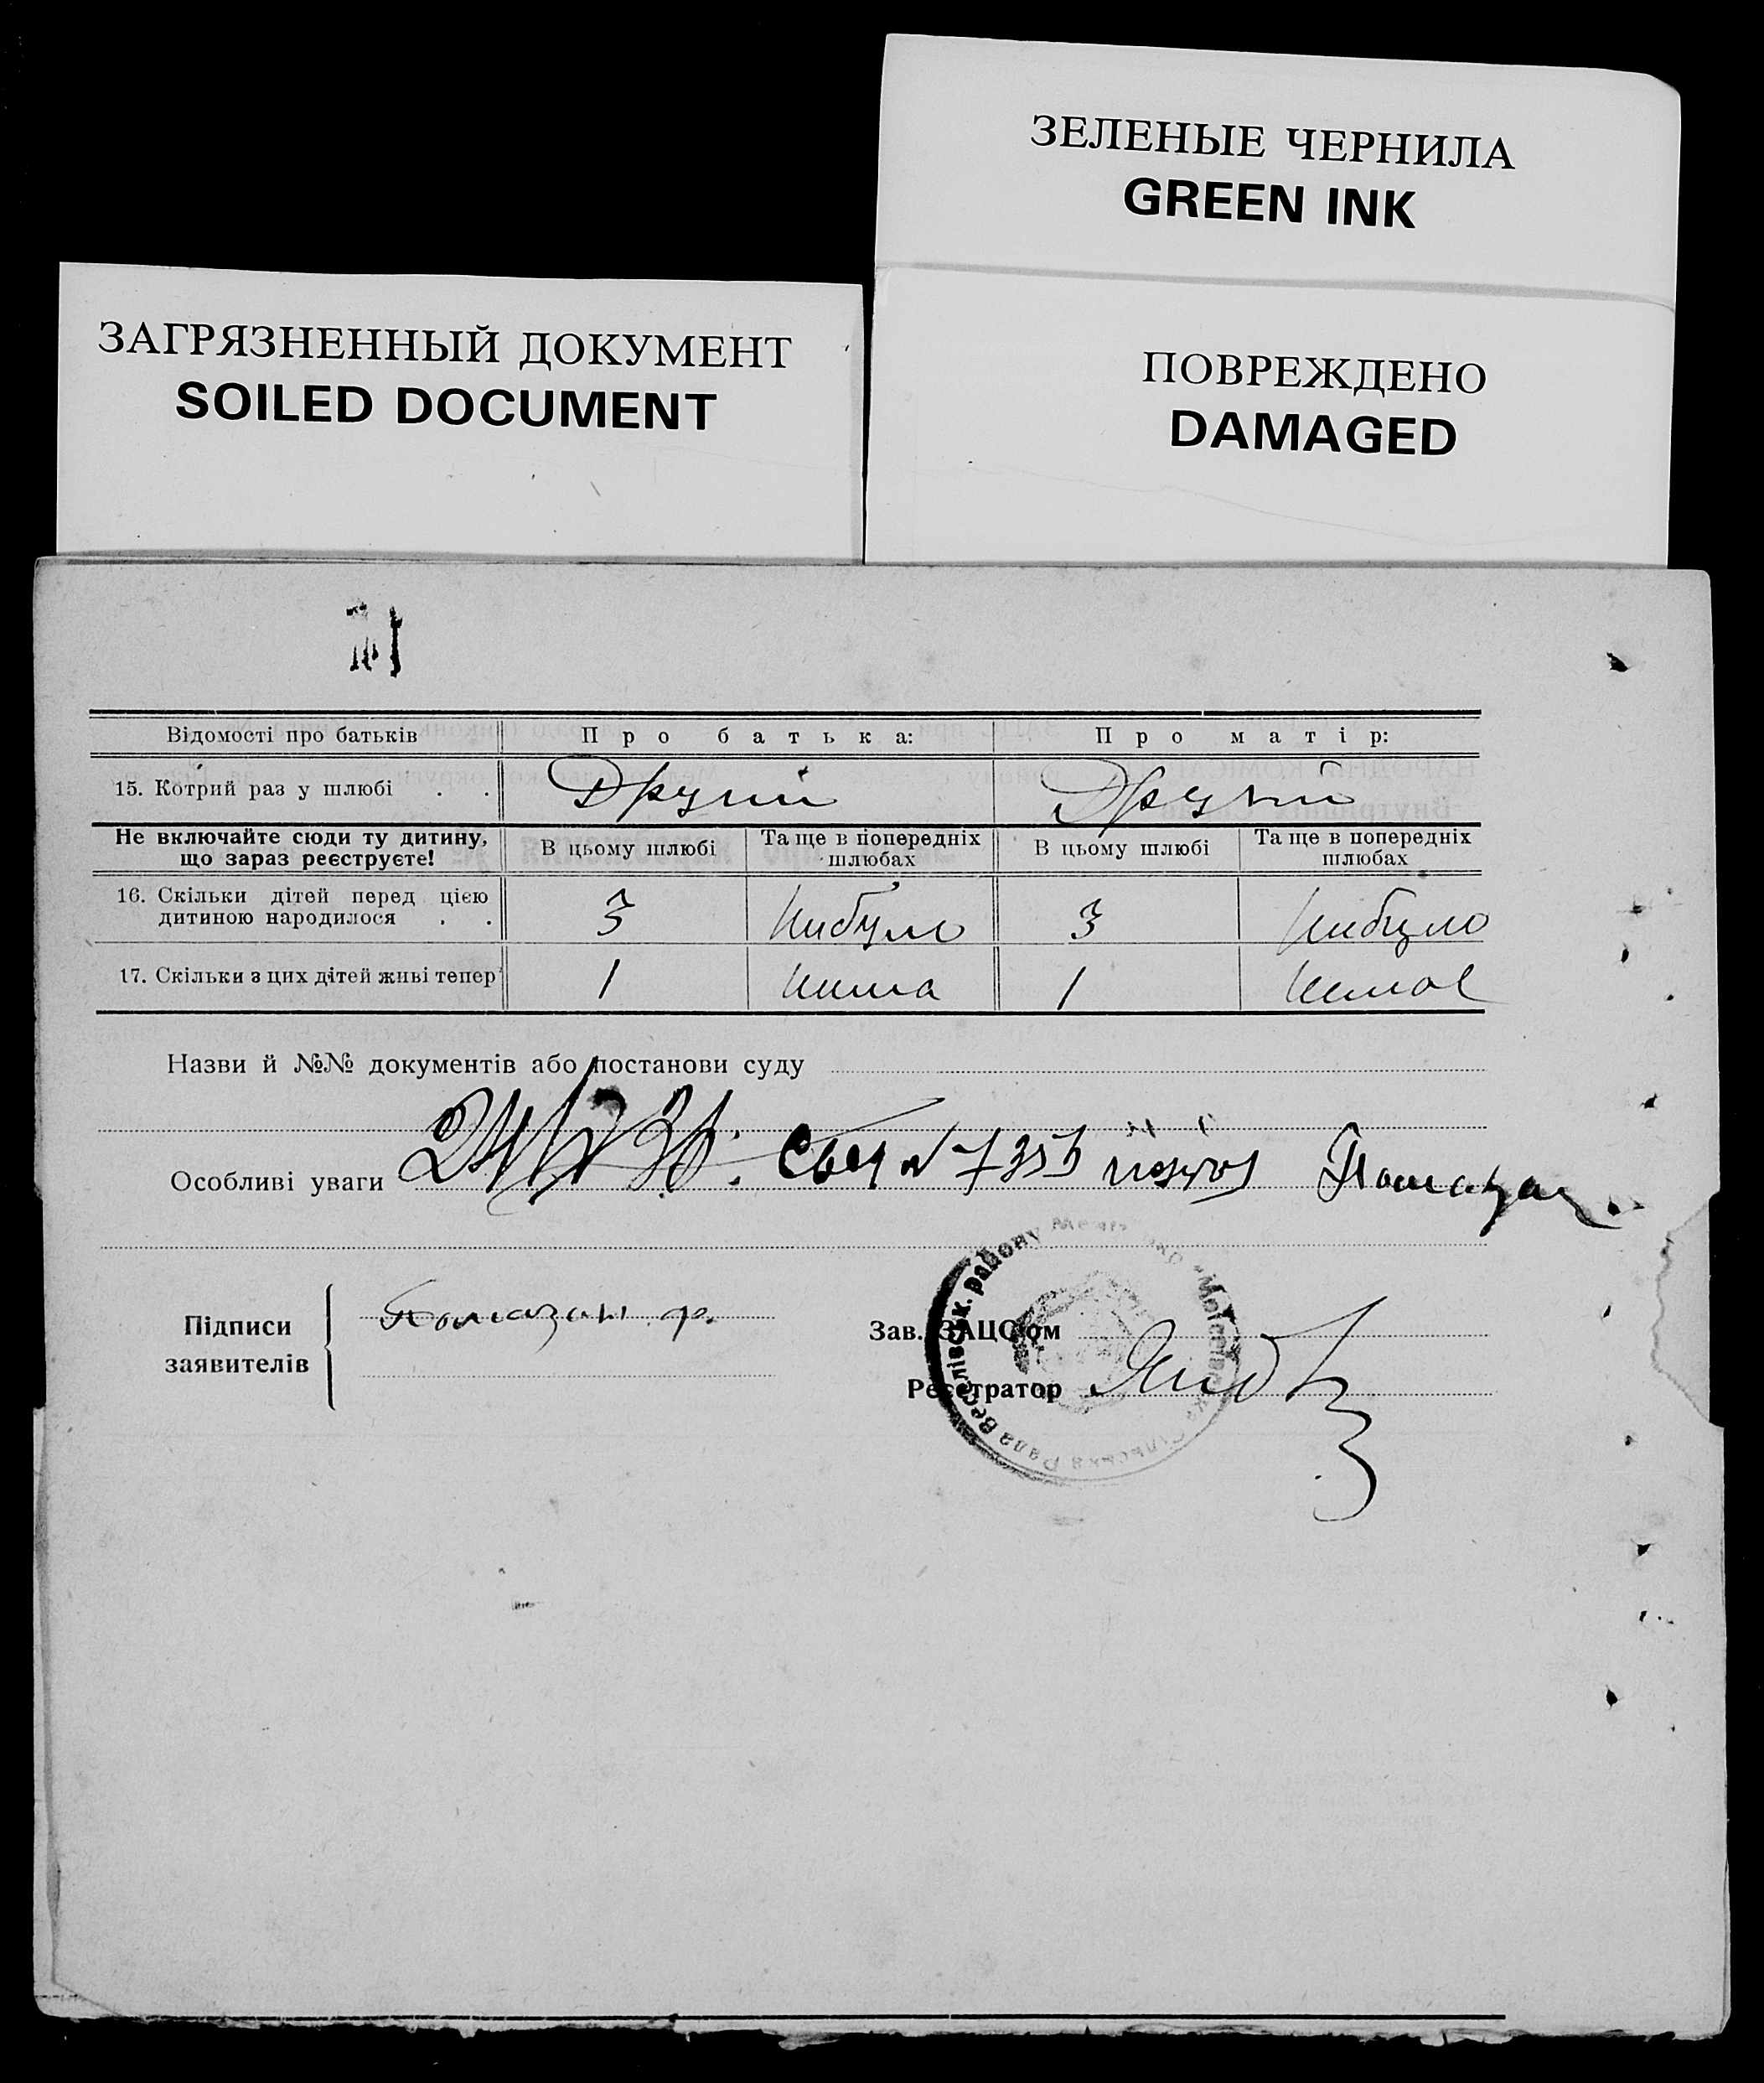 ЗЕЛЕНЫЕ ЧЕРНИЛА
GREEN INK
ЗАГРЯЗНЕННЫЙ ДОКУМЕНТ
SOILED DOCUMENT
ПОВРЕЖДЕНО
DAMAGED
Відомості про батьків Про батька: Про матір:
15. Котрий раз у шлюбі . . Другий Другий
Не включайте сюди ту дитину, що зараз реєструєте! В цьому шлюбі Та ще в попередніх шлюбах В цьому шлюбі Та ще в попередніх шлюбах
16. Скільки дітей перед цією
дитиною народилося . . 3 Нибуло 3 Нибуло
17. Скільки з цих дітей живі тепер 1 1
Назви й №№ документів або постанови суду
Особливі уваги
Підписи
заявителів
Зав. ЗАЦС'ом
Реєстратор
Рада Веселівськ. району